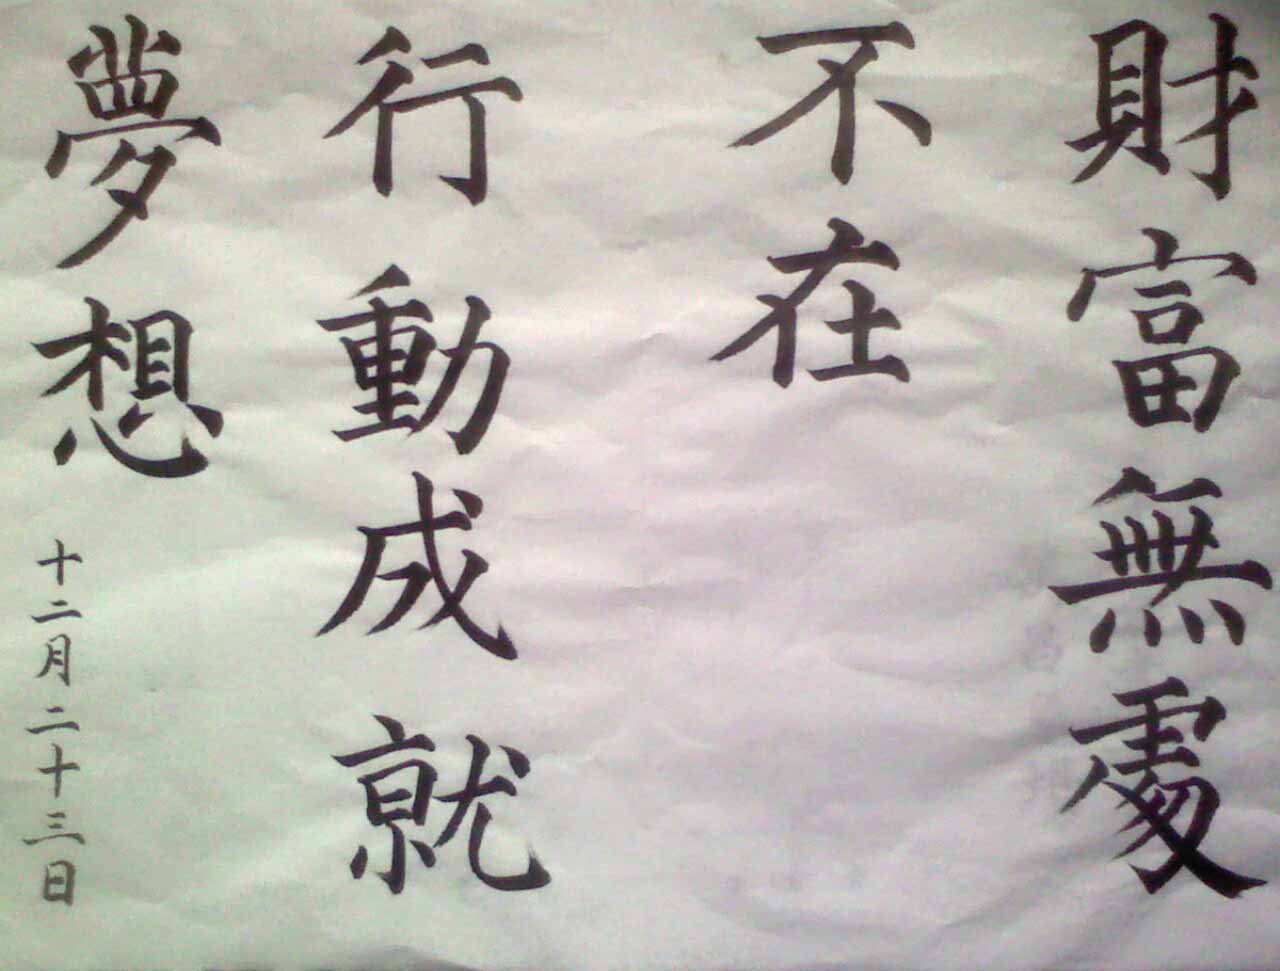 財富無處
不在
行動成就
夢想
十二月二十三日